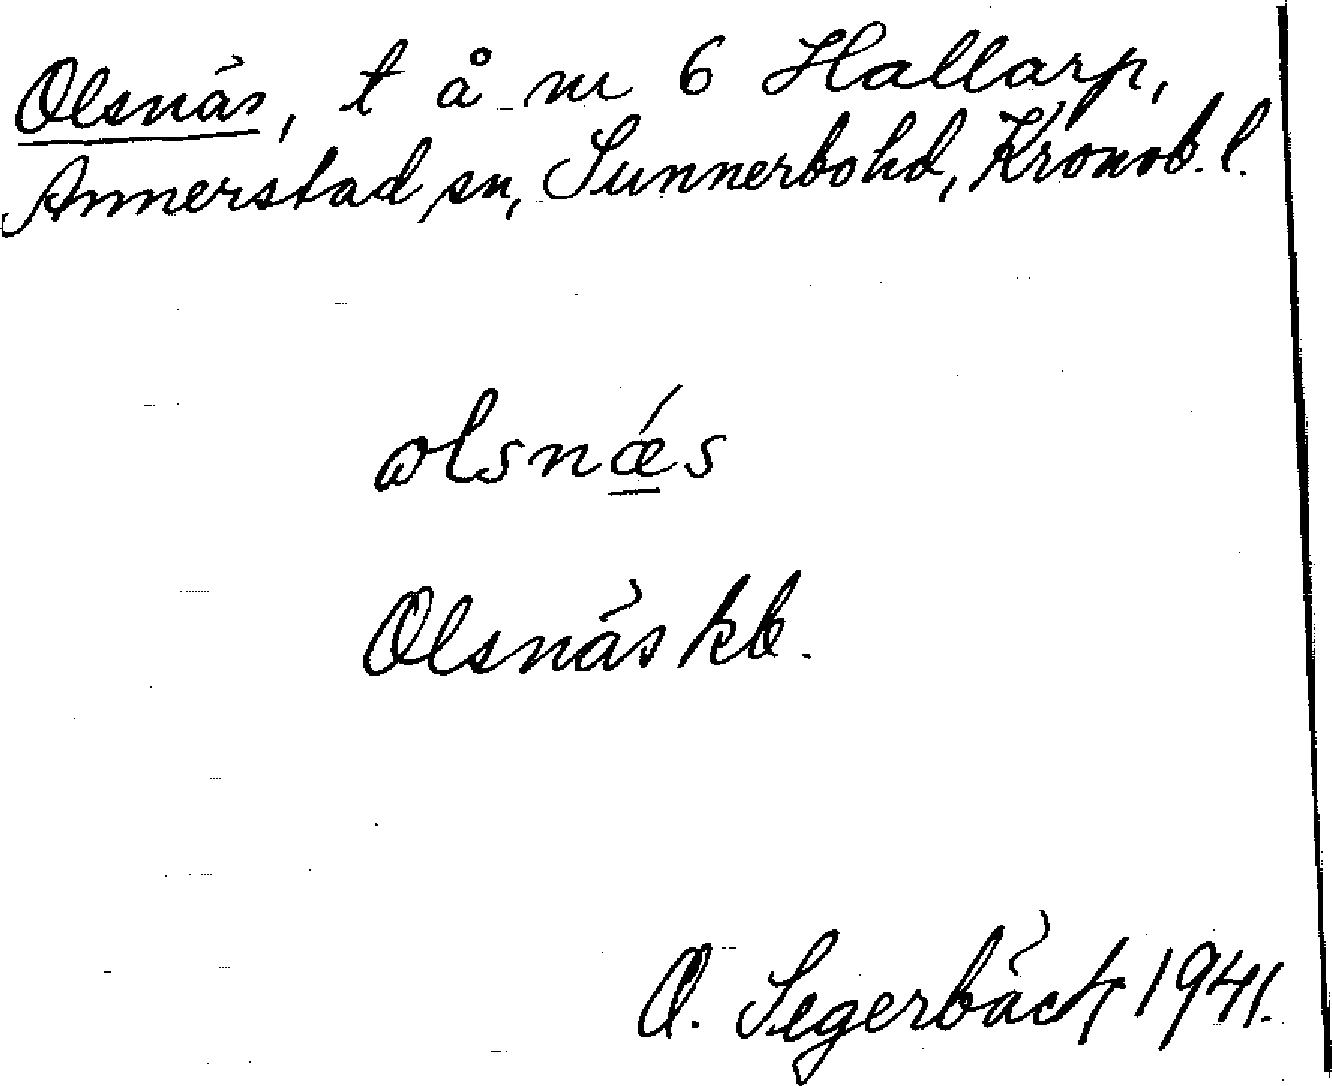 Olsnäs, t å nr 6 Hallarp,
Annerstad sn, Sunnerbo hd, Kronob. l.
ɷlsnǽs
Olsnäs kb.
O. Segerbäck 1941.